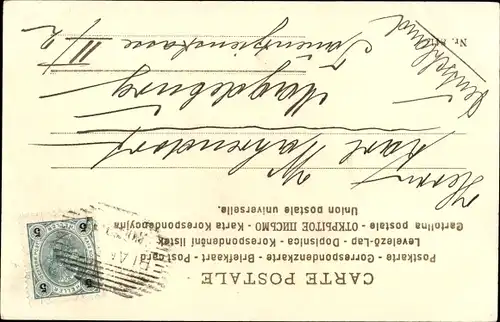 CARTE POSTALE
Postkarte - Correspondenzkarte - Briefkaart - Postcard
Levelező-Lap - Dopisnica - Korespondenční lístek
Cartolina postale - ОТКРЫТОЕ ПИСЬМО - Karta Korespondencyjna
Union postale universelle.
5 5
Herrn
Karl Wahrendorf
Magdeburg
Tauenzienstrasse
11/2
Deutschland
Nr.